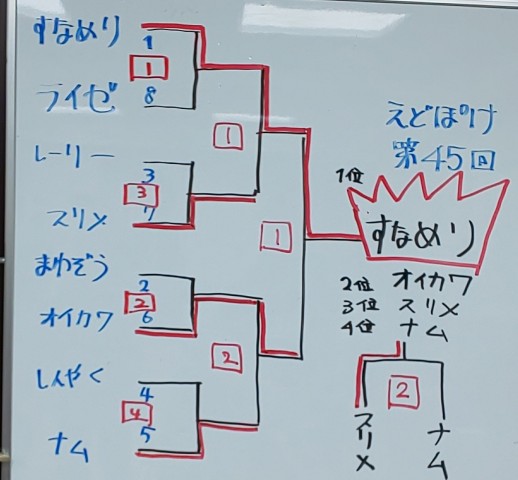 すなめり
1
1
8
ライゼ
1
レーリー
3
3
7
スリメ
1
まわぞう
2
2
6
オイカワ
2
しんやく
4
4
5
ナム
えどぽけ
第45回
1位
すなめり
2位 オイカワ
3位 スリメ
4位 ナム
2
スリメ
ナム